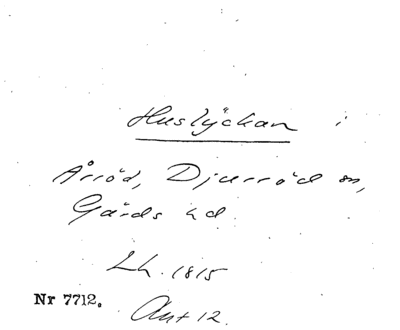 Huslyckan i
Årröd, Djurröd sn,
Gärds hd.
Lh. 1815
Nr 7712. Akt 12.